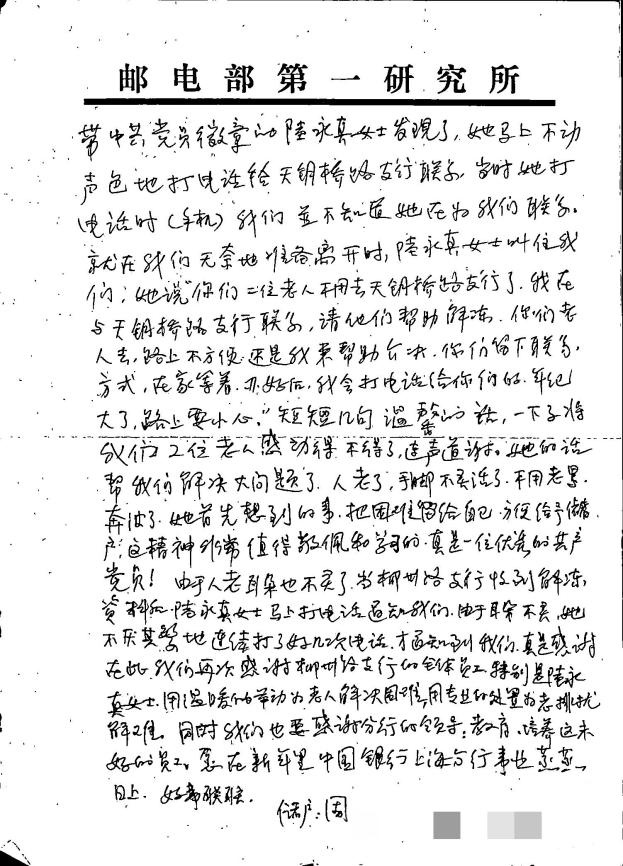 邮电部第一研究所
带中共党员徽章的陆永真女士发现了,她马上不动
声色地打电话给天钥桥路支行联系,当时她打
电话时(手机)我们並不知道她在为我们联系。
就在我们无奈地准备离开时,陆永真女士叫住我
们;她说"你们二位老人不用去天钥桥路支行了.我在
与天钥桥路支行联系,请他们帮助解冻.你们老
人去,路上不方便.还是我来帮助解决.你们留下联系
方式,在家等着.办好后,我会打电话给你们的.年纪
大了,路上要小心."短短几句温馨的话,一下子将
我们二位老人感动得不得了,连声道谢.她的话
帮我们解决大问题了.人老了,手脚不灵活了.不用老是
奔波了.她首先想到的事.把困难留给自己.方便给予储
户.这精神非常值得敬佩和学习的.真是一位优秀的共产
党员!由于人老耳朵也不灵了.当柳州路支行收到解冻
资料后.陆永真女士马上打电话通知我们.由于耳朵不灵,她
不厌其烦地连续打了好几次电话.才通知到我们.真是感谢
在此.我们再次感谢柳州路支行的全体员工.特别是陆永
真女士.用温暖的举动为老人解决困难,用专业的处置为老人排忧
解难.同时我们也要感谢分行的领导.教育、培养这末
好的员工.愿在新年里中国银行上海分行事业蒸蒸
日上.好事联联.
储户:周